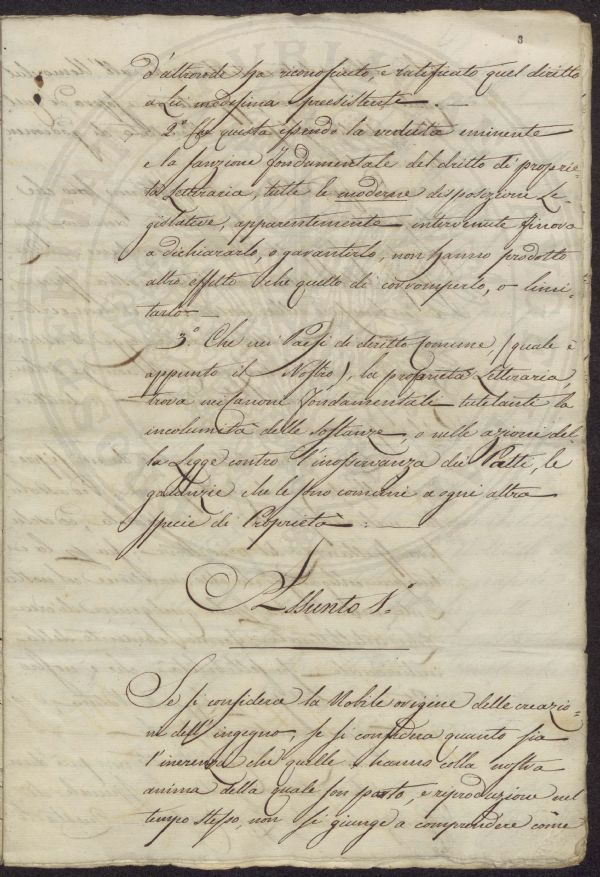 3
d'altronde ha riconosciuto, e ratificato quel diritto
a Lei medesima preesistente. —
2.° Che questa essendo la veduta eminente
e la sanzione fondamentale del dritto di proprie-
tà Letteraria, tutte le moderne disposizioni Le-
gislative, apparentemente intervenute finora
a dichiararlo, o garantirlo, non hanno prodotto
altro effetto che quello di corromperlo, o limi-
tarlo —
3.° Che nei Paesi di diritto Comune, (quale è
appunto il Nostro), la proprietà Letteraria,
trova nei canoni fondamentali tutelanti la
incolumità delle sostanze, o nelle azioni del
la Legge contro l'inosservanza dei Patti, le
garanzie che le sono comuni a ogni altra
specie di Proprietà. —
Assunto 1.°
Se si considera la Nobile origine delle creazio-
ni dell'ingegno, se si considera quanto sia
l'inerenza che quelle hanno colla nostra
anima della quale son parto, e riproduzione nel
tempo stesso, non si giunge a comprendere come